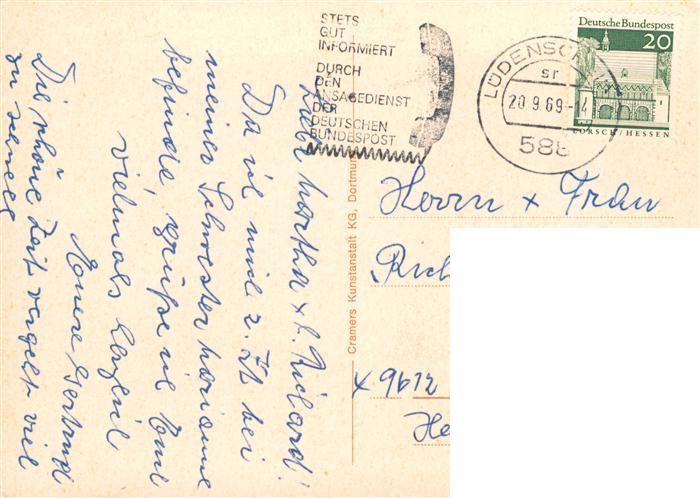 Liebe Martha & l. Richard!
Da ich mich z. Zt bei
meiner Schwester Marianne
befinde, grüße ich Euch
vielmals herzlich
Eure Gertrud
Die schöne Zeit vergeht viel
zu schnell
STETS
GUT
INFORMIERT
DURCH
DEN
ANSAGEDIENST
DER
DEUTSCHEN
BUNDESPOST
Cramers Kunstanstalt KG, Dortmund
LÜDENSCH
sr
20.9.69-14
588
Deutsche Bundespost
20
LORSCH/HESSEN
Herrn & Frau
Rich
x 9612
He